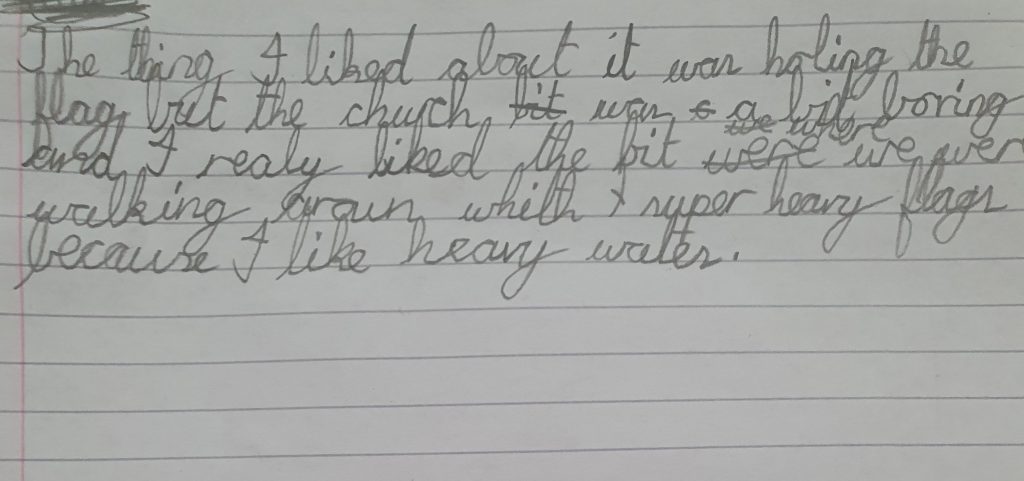 The thing I liked about it was holing the
flag but the chuych bit was a bit boring
I realy liked the bit were we wer
walking aroun whith super heavy flags
because I like heavy water.